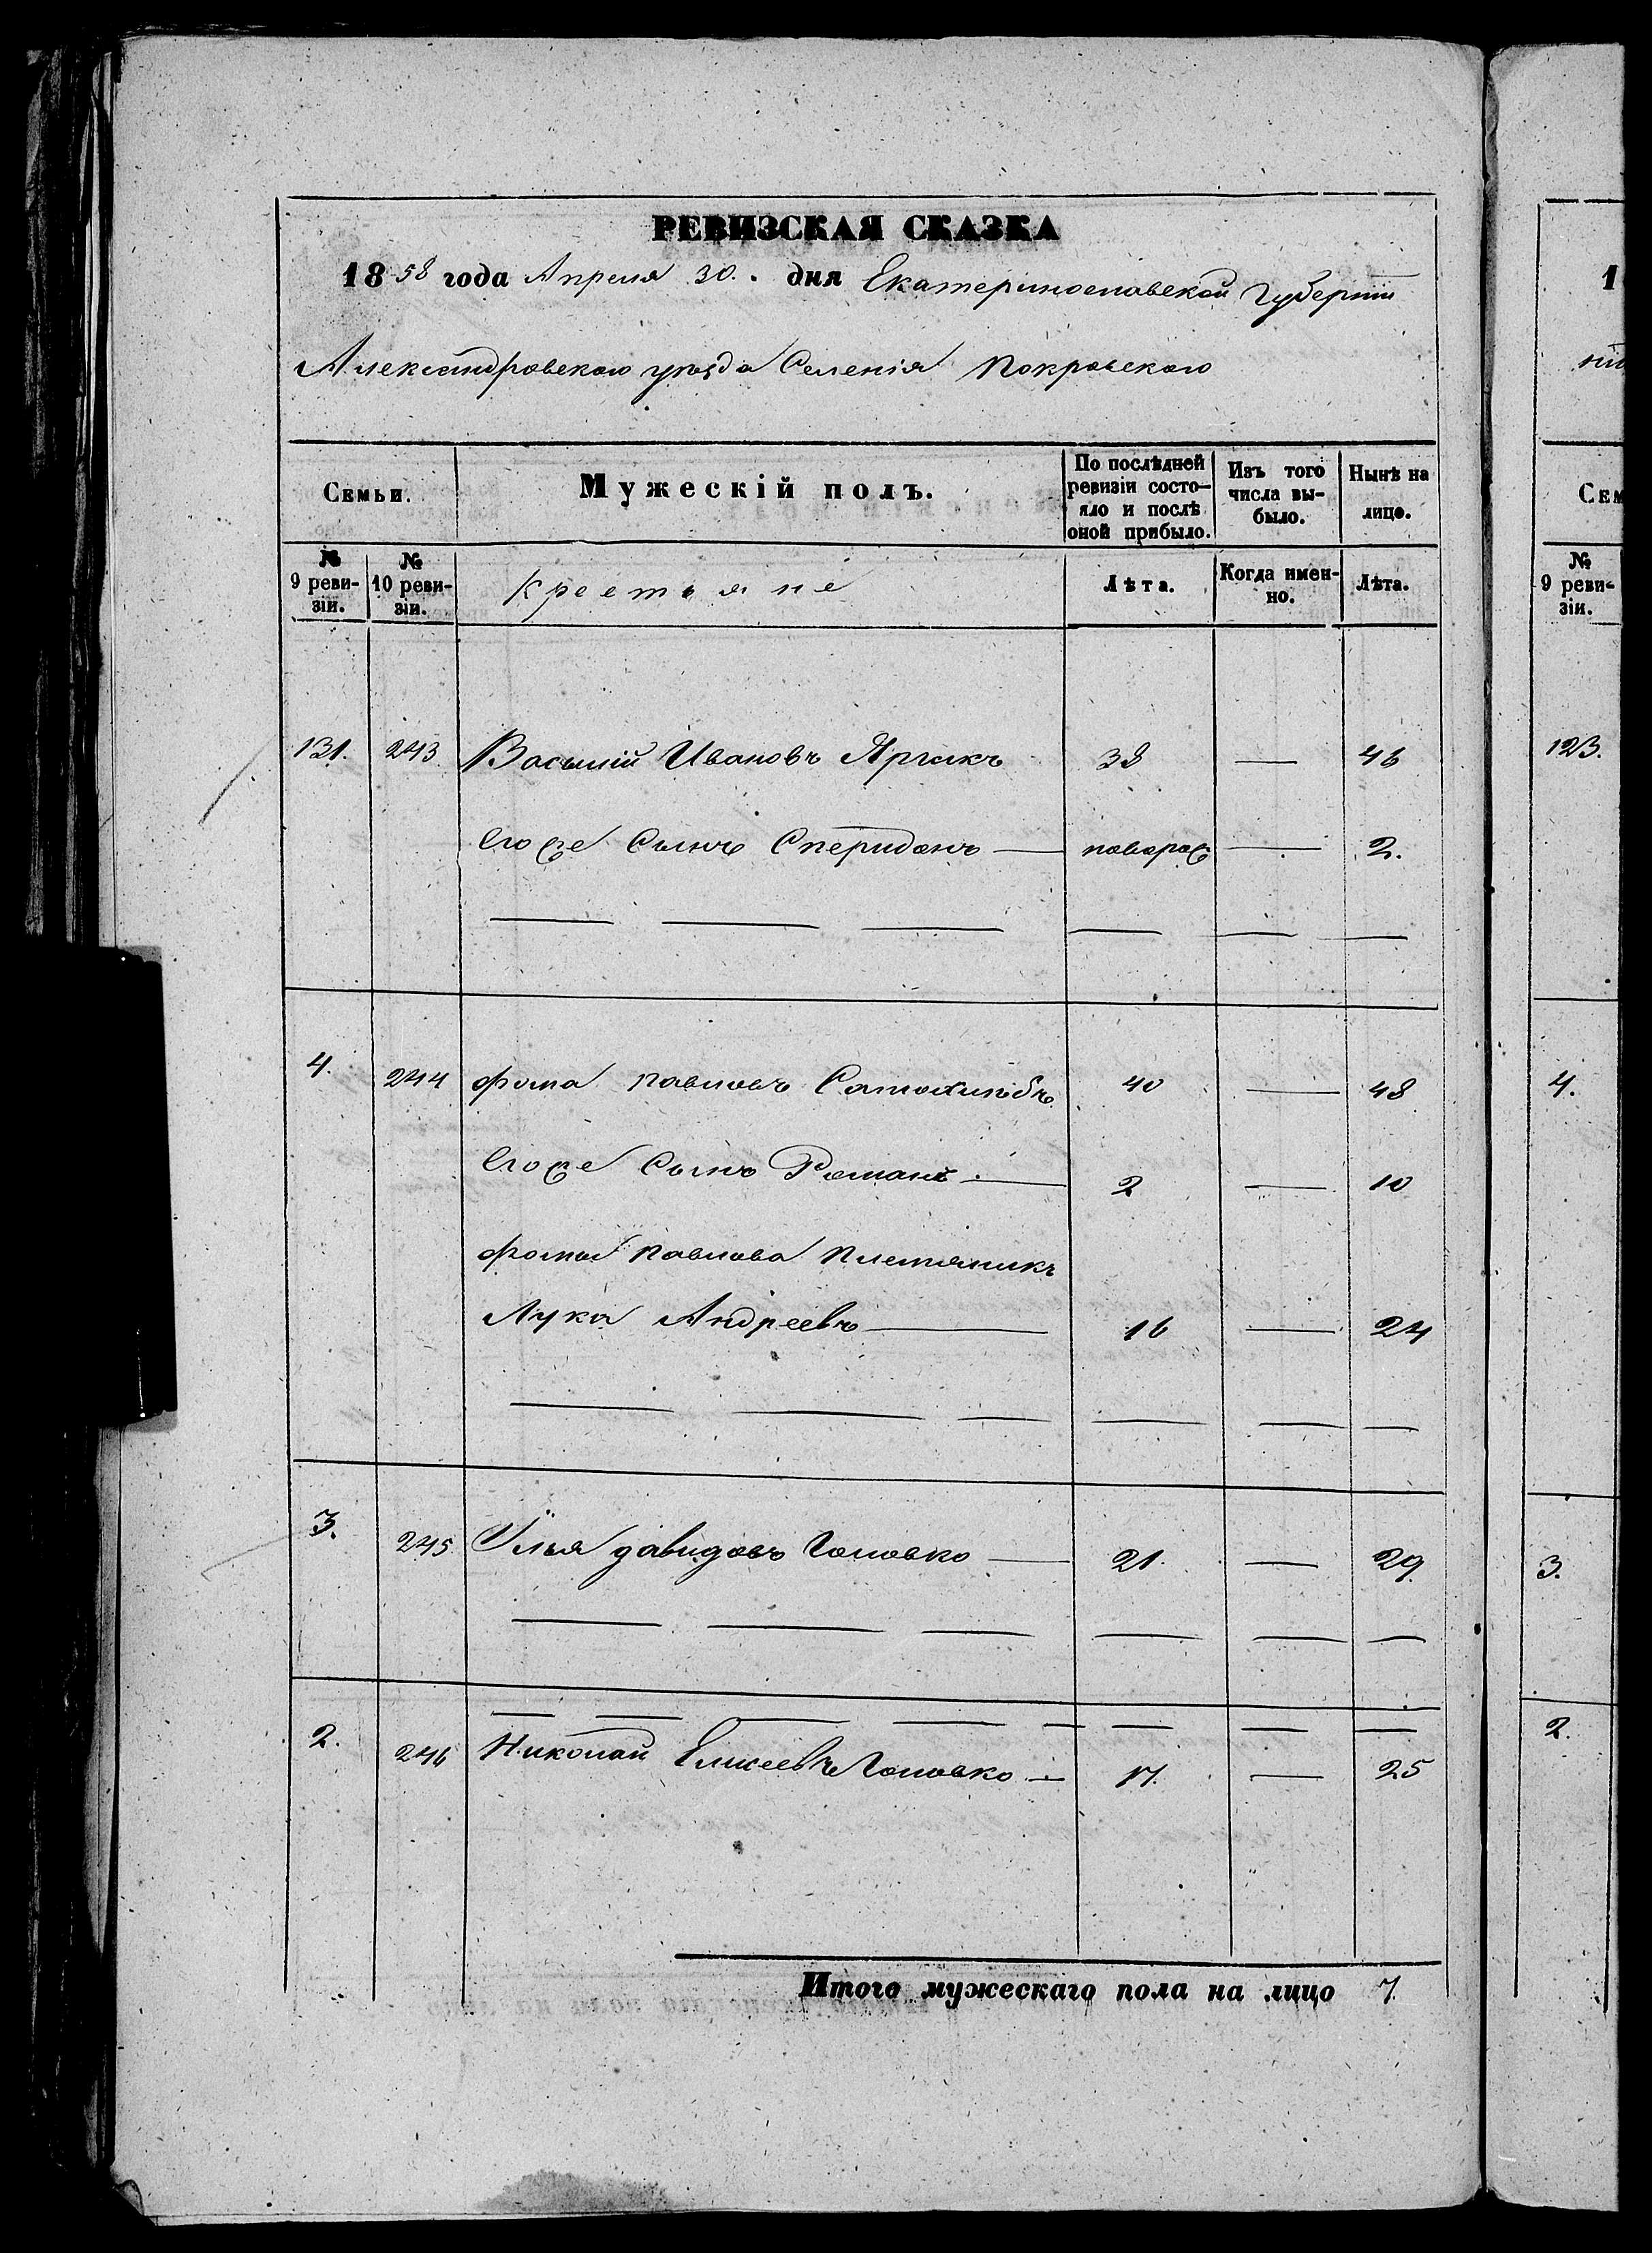 РЕВИЗСКАЯ СКАЗКА
1858 года Апреля 30. дня Екатеринославской Губерніи
Александровскаго уѣзда Селенія Покровскаго
Семьи.
Мужескій полъ.
По послѣдней ревизіи состо-
яло и послѣ
оной прибыло.
Изъ того
числа вы-
было.
Нынѣ на
лицо.
№
9 реви-
зіи.
№
10 реви-
зіи.
Крестьяне
Лѣта.
Когда имен-
но.
Лѣта.
131. 243 Василій Ивановъ 38 — 46
Его же Сынъ Спиридонъ — новорож — 2.
4. 244 Фома Павловъ 40 — 48
Его же Сынъ Романъ — 2 — 10
Фомы Павлова Племянникъ
Лука Андреевъ — 16 — 24
3. 245 Илья Давидовъ Головко — 21. — 29.
2. 246 Николай Елисеевъ Головко — 17. — 25
Итого мужескаго пола на лицо 7
1
ні
Сем
№
9 реви-
зіи.
123.
4.
3.
2.